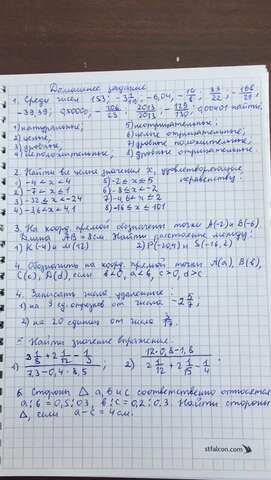 Домашнее задание
1. Среди чисел 153; −6,04,
−39,39; 0,00401 найти:
1) натуральные; 5) неотрицательные;
2) целые; 6) целые отрицательные;
3) дробные; 7) дробные положительные;
4) неположительные; 8) дробные отрицательные.
2. Найти все целые значения x, удовлетворяющие
неравенству:
1) −4 < x < 4 5) −2 ≤ x ≤
2) −7 ≤ x ≤ 1 6) −8 ≤ x ≤ −2
3) −32 ≤ x < −24
8) −16 ≤ x ≤ 101
3. На коорд. прямой обозначены точки A(−2) и B(−6).
Длина AB = 8см. Найти расстояние между:
1) K(−4) и M(−12) 2) P(−20,4) и S(−16,2)
4. Обозначить на коорд. прямой точки A(a), B(b),
C(c), D(d), если a < b, c > 0, d > c
4. Записать число удаленное:
1) на 9 ед. отрезков от числа
2) на 20 единиц от числа
5. Найти значение выражения.
1) 3 1/3 + 2 1/12 − 1/3 2) 12·0,3−1,8
7,3−0,4·8,5 2 1/12 + 2 1/15 − 1/4
6. Стороны Δ a, b и c соответственно относятся
a:b = 0,5:0,3, b:c = 0,2:0,3. Найти стороны
Δ, если a − c = 4 см.
stfalcon.com